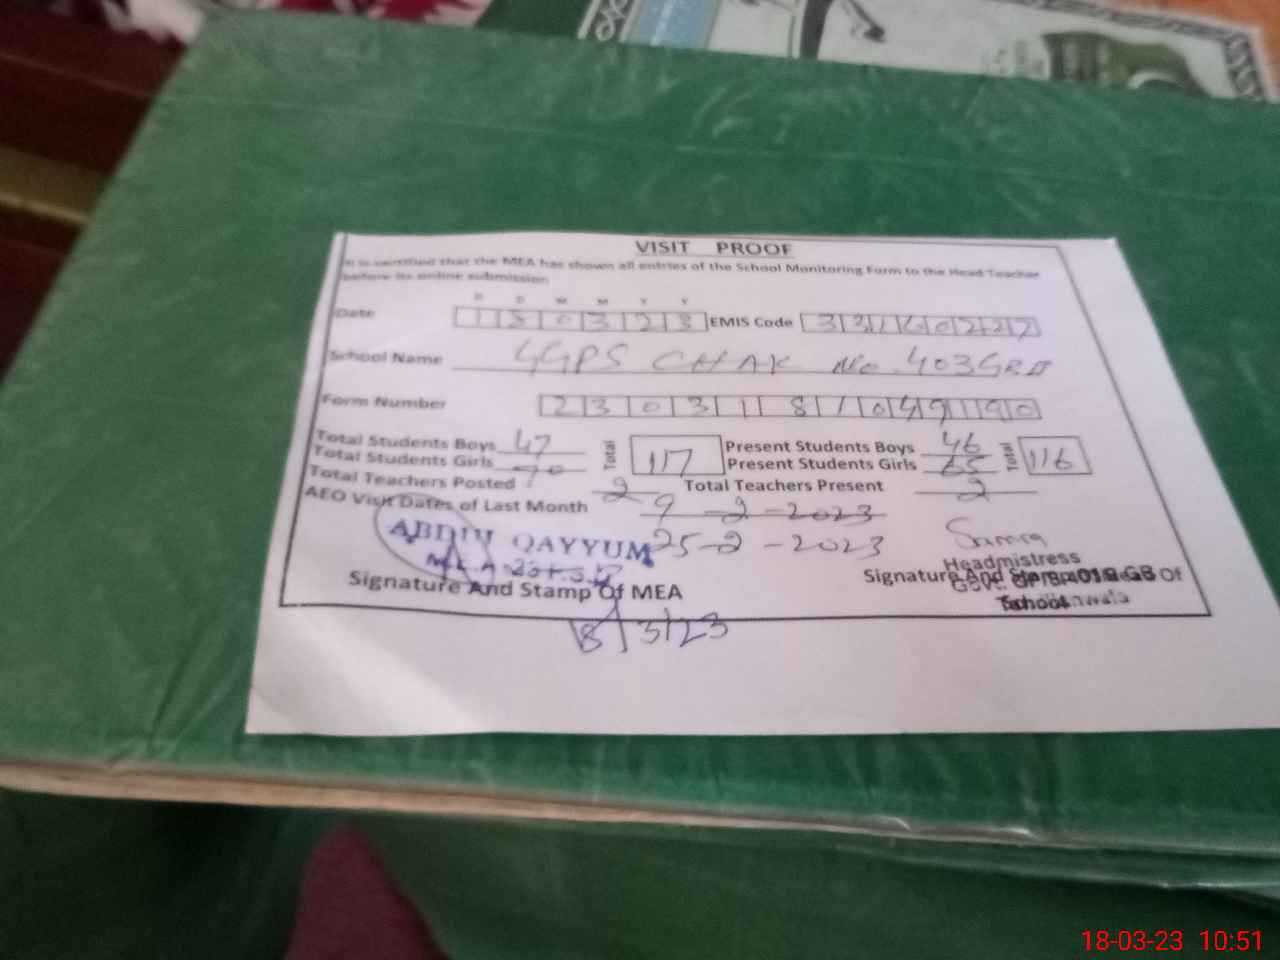 VISIT PROOF
It is certified that the MEA has shown all entries of the School Monitoring Form to the Head Teacher
before its online submission
D D M M Y Y
Date 180323 EMIS Code 33140227
School Name GGPS CHAK No. 403GB II
Form Number 230318104990
Total Students Boys 47 Total 117 Present Students Boys 46 Total 116
Total Students Girls 70 Present Students Girls
Total Teachers Posted 2 Total Teachers Present 2
AEO Visit Dates of Last Month 9-2-2023
25-2-2023
ABDUL QAYYUM
Samra
Headmistress
Signature And Stamp Of MEA
Signature And Stamp Of
School
18/3/23
18-03-23 10:51